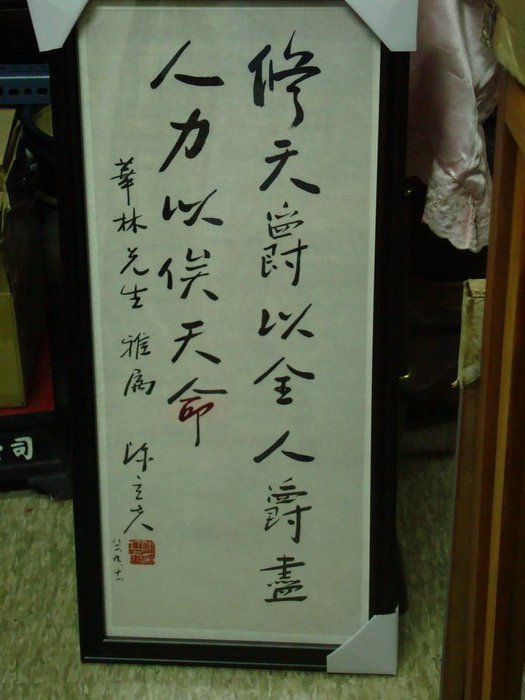 修天爵以全人爵盡
人力以俟天命
華林先生 雅屬
陳立夫
司